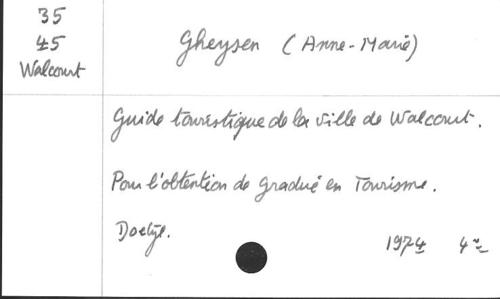 35
45
Walcourt
Gheysen (Anne-Marie)
Guide touristique de la ville de Walcourt.
Pour l'obtention de gradué en Tourisme.
Dactyl.
1974 4°